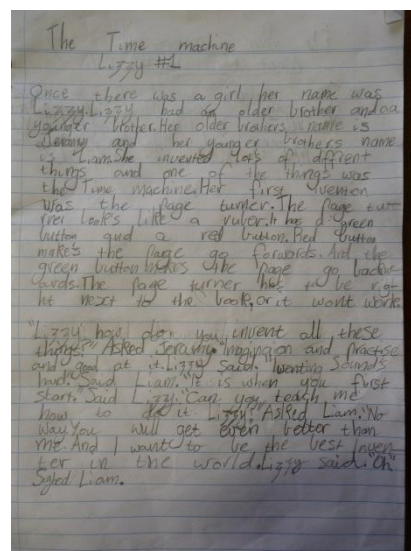 The Time machine
Lizzy #1
Once there was a girl her name was
Lizzy.Lizzy had an older brother and aa
younger brother.Her older brothers name is
Jeramy and her younger brothers name
is Liam.She invented lots of diffrent
things and one of the things was
the Time machine.Her first vention
was the page turner.The page turr
rner looks like a ruler.It has a green
button and a red button.Red button
makes the page go forwards.And the
green button makes the page go backw
ards.The page turner has to be rig-
ht next to the book,or it wont work.
"Lizzy how do you invent all these
things?" Asked Jeramy."Imagination and practise
and good at it.Lizzy said. Sounds
hard."Said Liam."It is when you first
start."Said Lizzy."Can you teach me
how to do it Lizzy?"Asked Liam."No
way.You will get even better than
me.And I want to be the best inven
ter in the world.Lizzy said."Oh"
Sighed Liam.